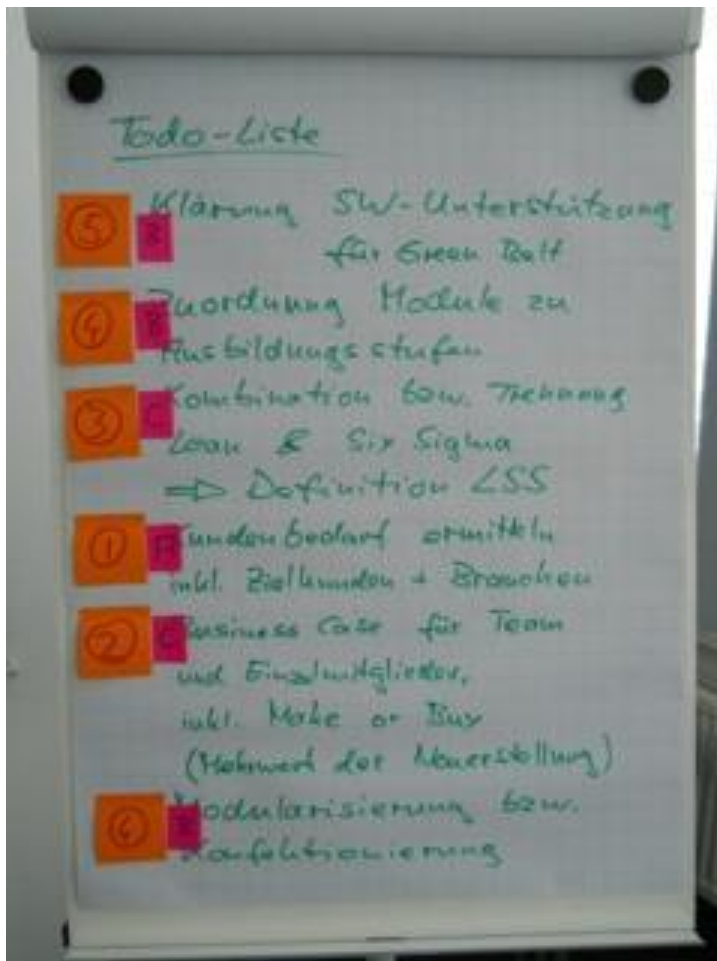 Todo-Liste
⑤ Klärung SW-Unterstützung
für Green Belt
④ B Zuordnung Module zu
Ausbildungsstufen
③ C Kombination bzw. Trennung
Lean & Six Sigma
⇒ Definition LSS
① A Kundenbedarf ermitteln
inkl. Zielkunden + Branchen
② C Business Case für Team
und Einzelmitglieder,
inkl. Make or Buy
(Mehrwert der Neuerstellung)
⑥ Modularisierung bzw.
Konfektionierung